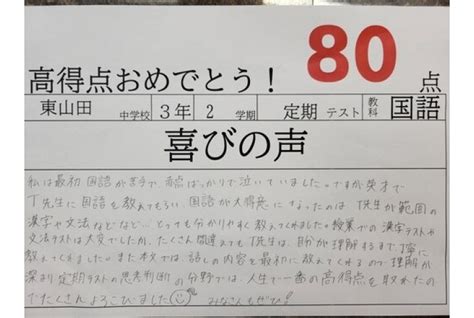 高得点おめでとう! 80点
東山田 中学校 3年 2 学期 定期 テスト 教科 国語
喜びの声
私は最初国語が苦手で赤点ばっかりで泣いていました。ですが英才で
T先生に国語を教えてもらい、国語が大得意になったのはT先生が範囲の
漢字や文法などなど… とっても分かりやすく教えてくれました。授業での漢字テストや
文法テストは大変でしたが、たくさん間違えてもT先生は、私が理解するまで丁寧に
教えてくれました。また本文では、話しの内容を最初に教えてくれるので理解が
深まり定期テストの思考判断の分野では、人生で一番の高得点を取れたの
でたくさんよろこびました みなさんもぜひ!